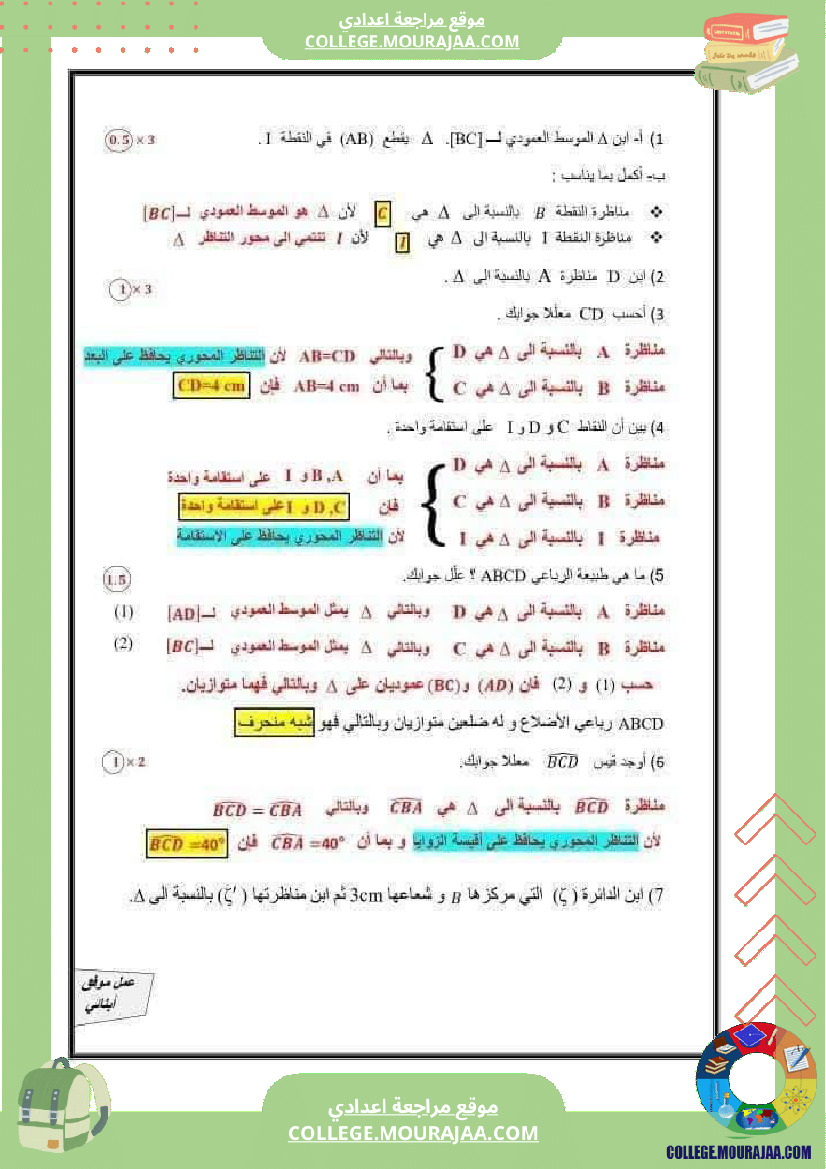 موقع مراجعة اعدادي
COLLEGE.MOURAJAA.COM
1) أ- ابن Δ الموسط العمودي لـ [BC]. Δ يقطع (AB) في النقطة I . 0.5 × 3
ب- أكمل بما يناسب :
❖ مناظرة النقطة B بالنسبة الى Δ هي C لأن Δ هو الموسط العمودي لـ [BC]
❖ مناظرة النقطة I بالنسبة الى Δ هي I لأن I تنتمي الى محور التناظر Δ
2) ابن D مناظرة A بالنسبة الى Δ .
1 × 3
3) أحسب CD معللا جوابك .
مناظرة A بالنسبة الى Δ هي D
مناظرة B بالنسبة الى Δ هي C
وبالتالي AB=CD لأن التناظر المحوري يحافظ على البعد
بما أن AB=4 cm فإن CD=4 cm
4) بين أن النقاط C و D و I على استقامة واحدة .
مناظرة A بالنسبة الى Δ هي D
مناظرة B بالنسبة الى Δ هي C
مناظرة I بالنسبة الى Δ هي I
بما أن A, B و I على استقامة واحدة
فان C, D و I على استقامة واحدة
لأن التناظر المحوري يحافظ على الاستقامة
5) ما هي طبيعة الرباعي ABCD ؟ علّل جوابك. 1.5
مناظرة A بالنسبة الى Δ هي D وبالتالي Δ يمثل الموسط العمودي لـ [AD] (1)
مناظرة B بالنسبة الى Δ هي C وبالتالي Δ يمثل الموسط العمودي لـ [BC] (2)
حسب (1) و (2) فان (AD) و (BC) عموديان على Δ وبالتالي فهما متوازيان.
ABCD رباعي الأضلاع و له ضلعين متوازيان وبالتالي فهو شبه منحرف
6) أوجد قيس BCD̂ معللا جوابك. 1 × 2
مناظرة BCD̂ بالنسبة الى Δ هي CBÂ وبالتالي BCD̂ = CBÂ
لأن التناظر المحوري يحافظ على أقيسة الزوايا و بما أن CBÂ =40° فإن BCD̂ =40°
7) ابن الدائرة (ζ) التي مركزها B و شعاعها 3cm ثم ابن مناظرتها (ζ′) بالنسبة الى Δ.
عمل موفق
أبنائي
موقع مراجعة اعدادي
COLLEGE.MOURAJAA.COM
COLLEGE.MOURAJAA.COM